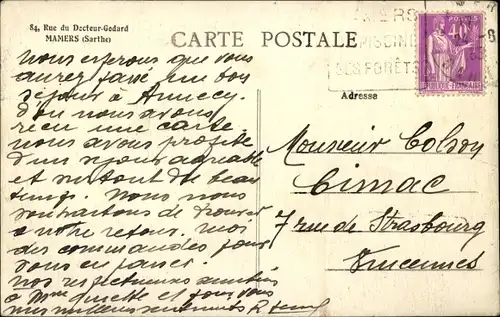 84, Rue du Docteur-Godard
MAMERS (Sarthe)
CARTE POSTALE
MAMERS
PISCINE
SES FORÊTS
POSTES
40
RÉPUBLIQUE FRANÇAISE
Adresse
Nous espérons que vous
aurez passé un bon
séjour à Annecy
d'où nous avons
reçu une carte
nous avons profité
d'un séjour agréable
et surtout de beau
temps. Nous nous
de trouver
à notre retour
des commandes pour
vous en passer.
Nos respectueuses amitiés
à Mme et pour vous
mes meilleurs sentiments
Monsieur Colson
Cimac
7 rue de Strasbourg
Vincennes